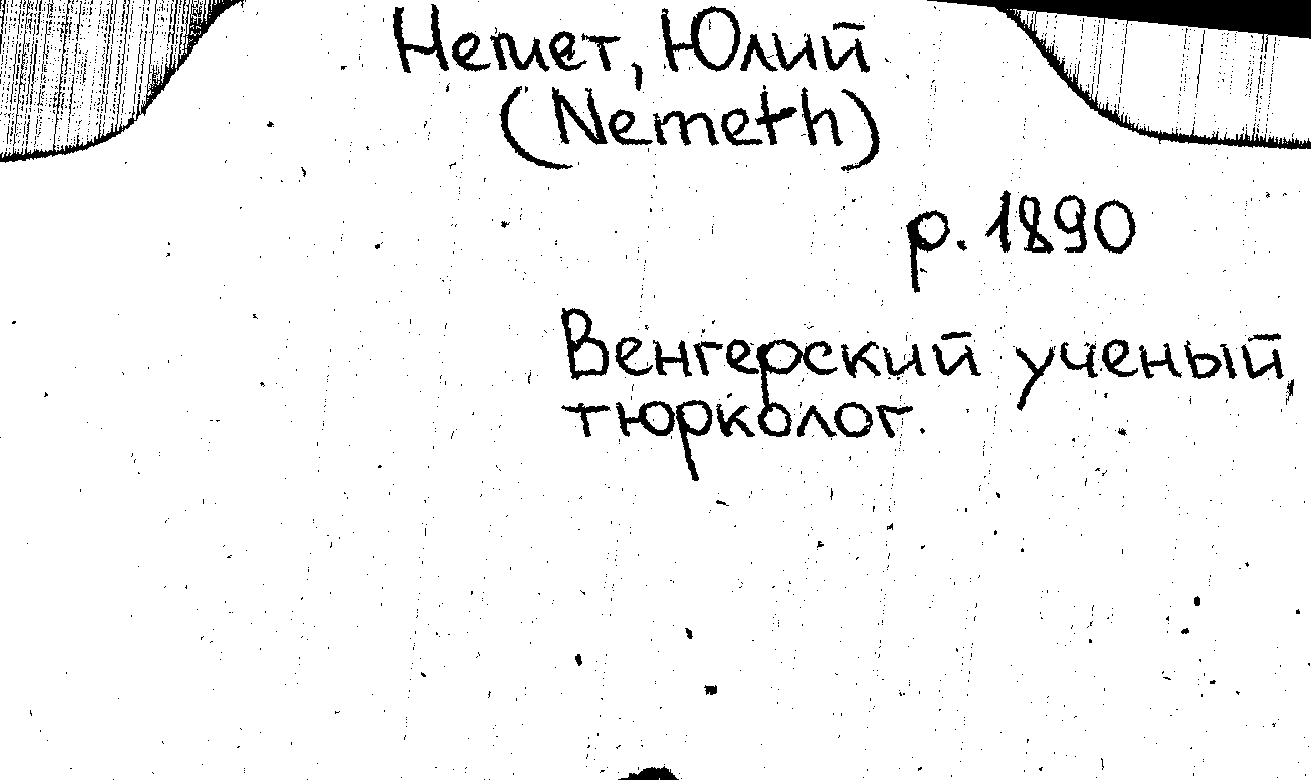 Немет, Юлий
(Nemeth)
р. 1890
Венгерский ученый,
тюрколог.